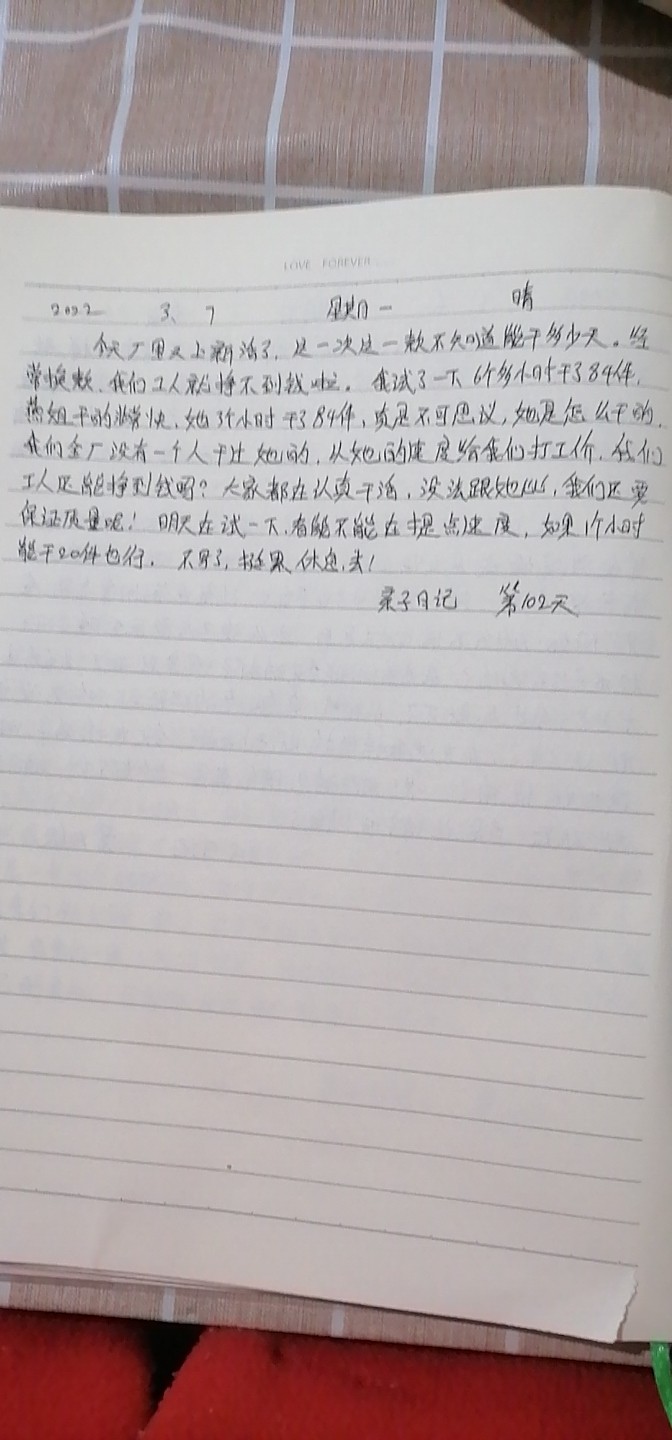 LOVE FOREVER
2022 3、7 星期一 晴
今天厂里又上新活了，这一次这一款不知道能干多少天。经
常换款、我们工人就挣不到钱啦。我试了一下6个多小时干了84件，
燕姐干的非常快、她3个小时干了84件，真是不可思议，她是怎么干的，
我们全厂没有一个人干过她的，从她的速度给我们打工价，我们
工人还能挣到钱吗？大家都在认真干活，没法跟她比，我们还要
保证质量呢！明天在试一下，看能不能在提点速度，如果1个小时
能干20件也行。不写了，挺累，休息去！
日记 第102天